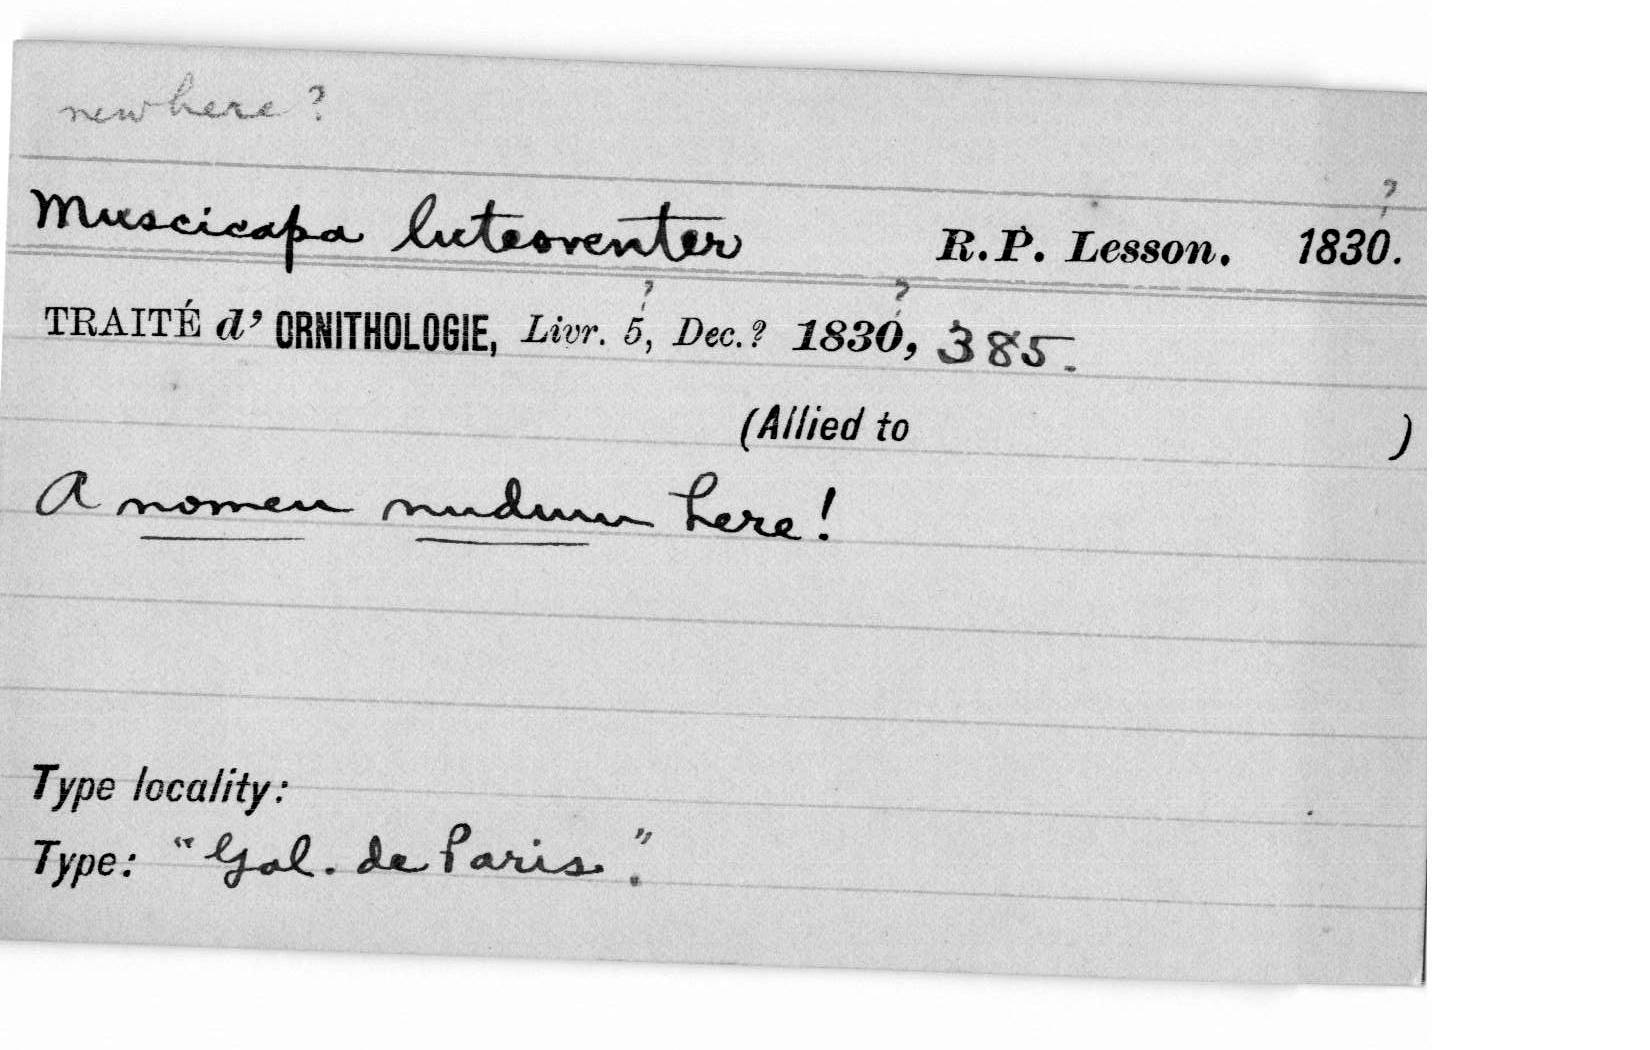 new here ?
Muscicapa luteoventer R.P. Lesson. 1830?.
TRAITÉ d' ORNITHOLOGIE, Livr. 5?, Dec.? 1830?, 385.
(Allied to )
A nomen nudum here!
Type locality:
Type: "Gal. de Paris."